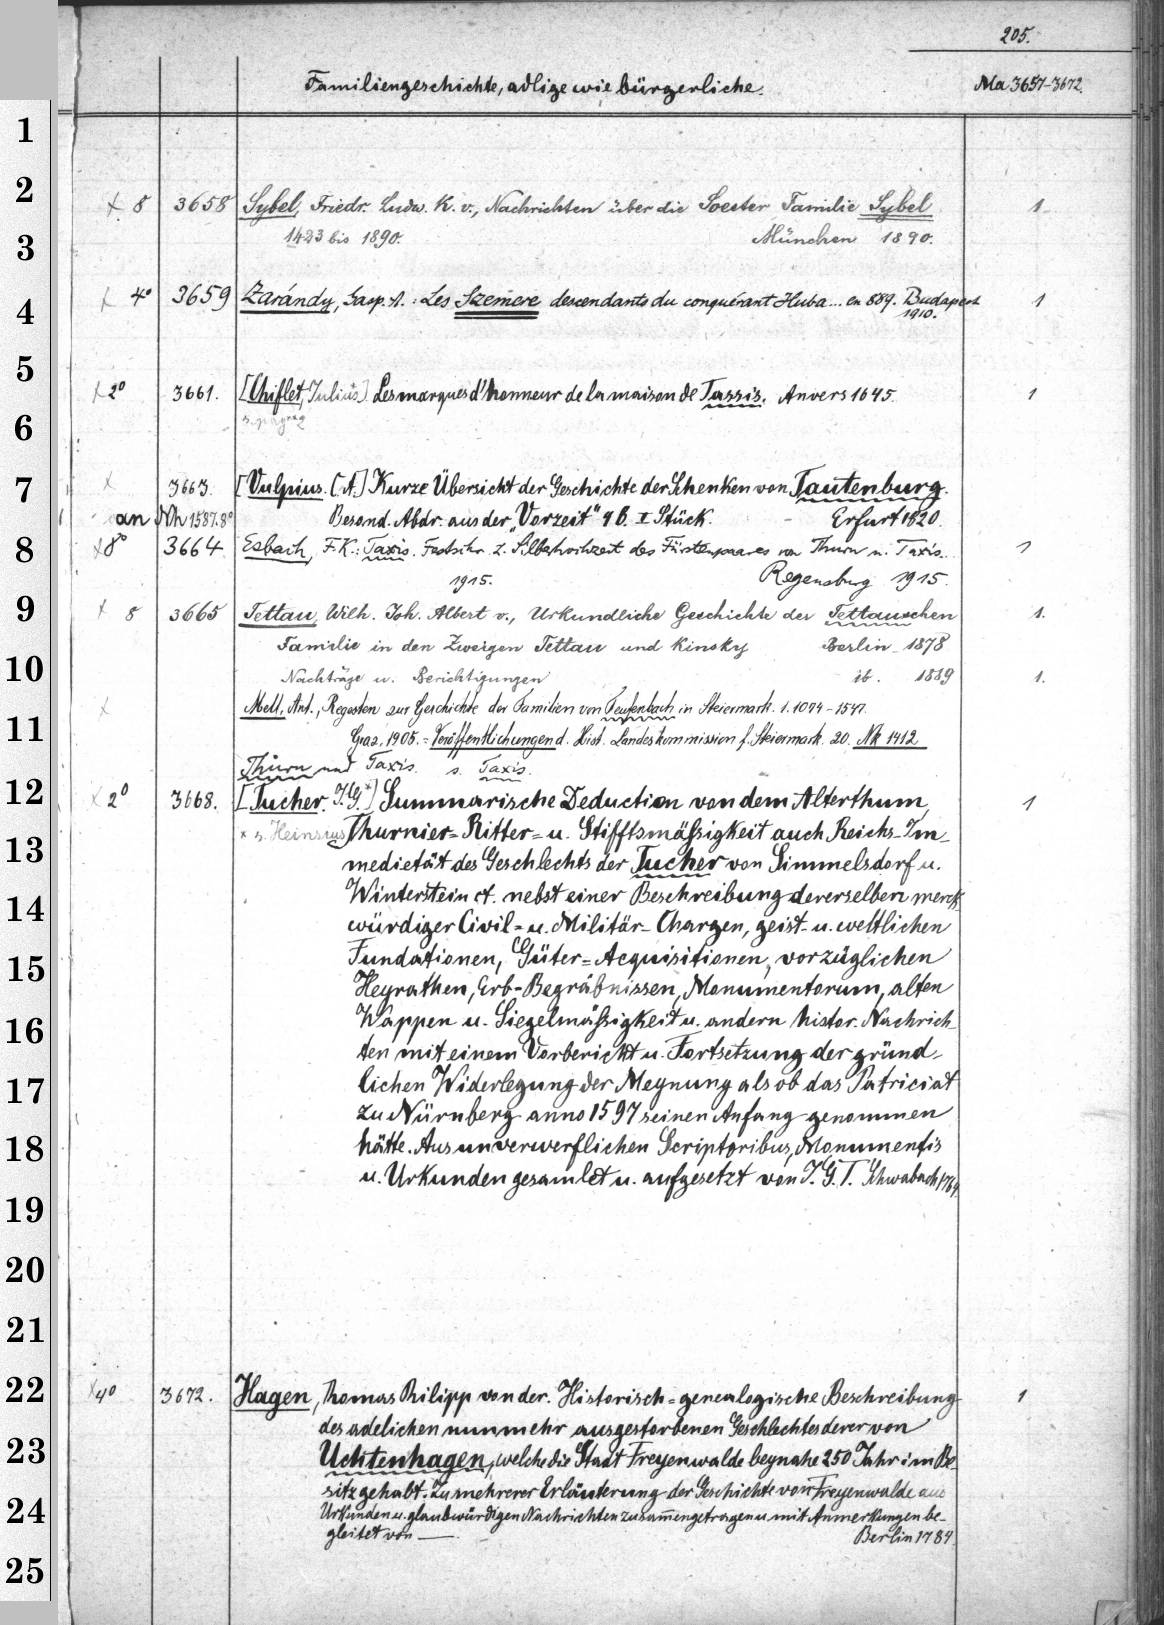 205.
Familiengeschichte, adlige wie bürgerliche. Ma 3657-3672.
1
2
x 8 3658 Sybel, Friedr. Ludw. K. v., Nachrichten über die Soester Familie Sybel 1
3
1423 bis 1890. München 1890.
4
x 4° 3659 Zarándy, Gasp. A.: Les Szemere descendants du conquérant Huba... en 889. Budapest 1
1910.
5
x 2° 3661. [Chiflet, Julius*] Les marques d'honneur de la maison de Tassis. Anvers 1645. 1
6
7
x 3663. [Vulpius. (A.] Kurze Übersicht der Geschichte der Schenken von Tautenburg.
an Nh 1587.8° Besond. Abdr. aus der „Vorzeit“ 4 B. I Stück. Erfurt 1820.
8
x 8° 3664 Esbach, F. K.: Taxis. Festschr. z. Silberhochzeit des Fürstenpaares von Thurn u. Taxis. 1
1915. Regensburg 1915.
9
x 8 3665 Tettau, Wilh. Joh. Albert v., Urkundliche Geschichte der Tettauschen 1.
Familie in den Zweigen Tettau und Kinsky Berlin 1878
10
Nachträge u. Berichtigungen ib. 1889 1.
x Mell, Ant., Regesten zur Geschichte der Familien von Teufenbach in Steiermark. 1. 1074-1547.
11
Graz, 1905. = Veröffentlichungen d. Hist. Landeskommission f. Steiermark. 20. Nk 1412
Thurn und Taxis s. Taxis.
12
x 2° 3668. [Tucher. J. G.*] Summarische Deduction von dem Alterthum, 1
x s. Heinsius Thurnier= Ritter= u. Stifftsmässigkeit auch Reichs-Im-
13
medietät des Geschlechts der Tucher von Simmelsdorf u.
Winterstein ct. nebst einer Beschreibung dererselben merck
14
würdiger Civil= u. Militär- Chargen, geist- u. weltlichen
Fundationen, Güter=Acquisitionen, vorzüglichen
15
Heyrathen, Erb-Begräbnissen, Monumentorum, alten
16
Wappen u. Siegelmässigkeit u. andern histor. Nachrich-
ten mit einem Vorbericht u. Fortsetzung der gründ-
17
lichen Widerlegung der Meynung als ob das Patriciat
zu Nürnberg anno 1597 seinen Anfang genommen
18
hätte. Aus unverwerflichen Scriptoribus, Monumentis
u. Urkunden gesamlet u. aufgesetzt von J. G. T. Schwabach 1764.
19
20
21
22
x 4° 3672. Hagen, Thomas Philipp von der. Historisch=genealogische Beschreibung 1
des adelichen nunmehr ausgestorbenen Geschlechtes derer von
23
Uchtenhagen, welche die Stadt Freyenwalde beynahe 250 Jahr im Be-
sitz gehabt. Zu mehrerer Erläuterung der Geschichte von Freyenwalde aus
24
Urkunden u. glaubwürdigen Nachrichten zusammengetragen u. mit Anmerkungen be-
gleitet von —. Berlin 1784.
25